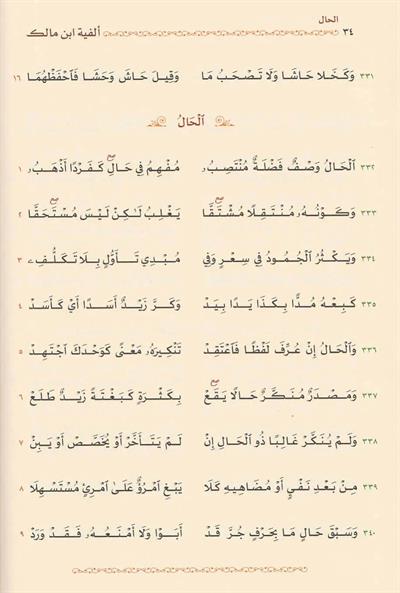 الحال
٣٤ ألفية ابن مالك
٣٣١ وَكَخَلَا حَاشَا وَلَا تَصْحَبُ مَا وَقِيلَ حَاشَ وَحَشَا فَٱحْفَظْهُمَا ١٦
ٱلْحَالُ
٣٣٢ ٱلْحَالُ وَصْفٌ فَضْلَةٌ مُنْتَصِبُ مُفْهِمُ فِي حَالِ كَفَرْدًا أَذْهَبُ ١
٣٣٣ وَكَوْنُهُ مُنْتَقِلًا مُشْتَقَّا يَغْلِبُ لَٰكِنْ لَيْسَ مُسْتَحَقَّا ٢
٣٣٤ وَيَكْثُرُ ٱلْجُمُودُ فِي سِعْرٍ وَفِي مُبْدِي تَأَوُّلٍ بِلَا تَكَلُّفِ ٣
٣٣٥ كَبِعْهُ مُدًّا بِكَذَا يَدًا بِيَدْ وَكَرَّ زَيْدٌ أَسَدًا أَيْ كَأَسَدْ ٤
٣٣٦ وَٱلْحَالُ إِنْ عُرِّفَ لَفْظًا فَٱعْتَقِدْ تَنْكِيرَهُ مَعْنًى كَوَحْدَكَ ٱجْتَهِدْ ٥
٣٣٧ وَمَصْدَرٌ مُنَكَّرٌ حَالًا يَقَعْ بِكَثْرَةٍ كَبَغْتَةً زَيْدٌ طَلَعْ ٦
٣٣٨ وَلَمْ يُنَكَّرْ غَالِبًا ذُو ٱلْحَالِ إِنْ لَمْ يَتَأَخَّرْ أَوْ يُخَصَّصْ أَوْ يَبِنْ ٧
٣٣٩ مِنْ بَعْدِ نَفْيٍ أَوْ مُضَاهِيهِ كَلَا يَبْغِ ٱمْرُؤٌ عَلَى ٱمْرِئٍ مُسْتَسْهِلَا ٨
٣٤٠ وَسَبْقَ حَالٍ مَا بِحَرْفٍ جُرَّ قَدْ أَبَوْا وَلَا أَمْنَعُهُ فَقَدْ وَرَدْ ٩